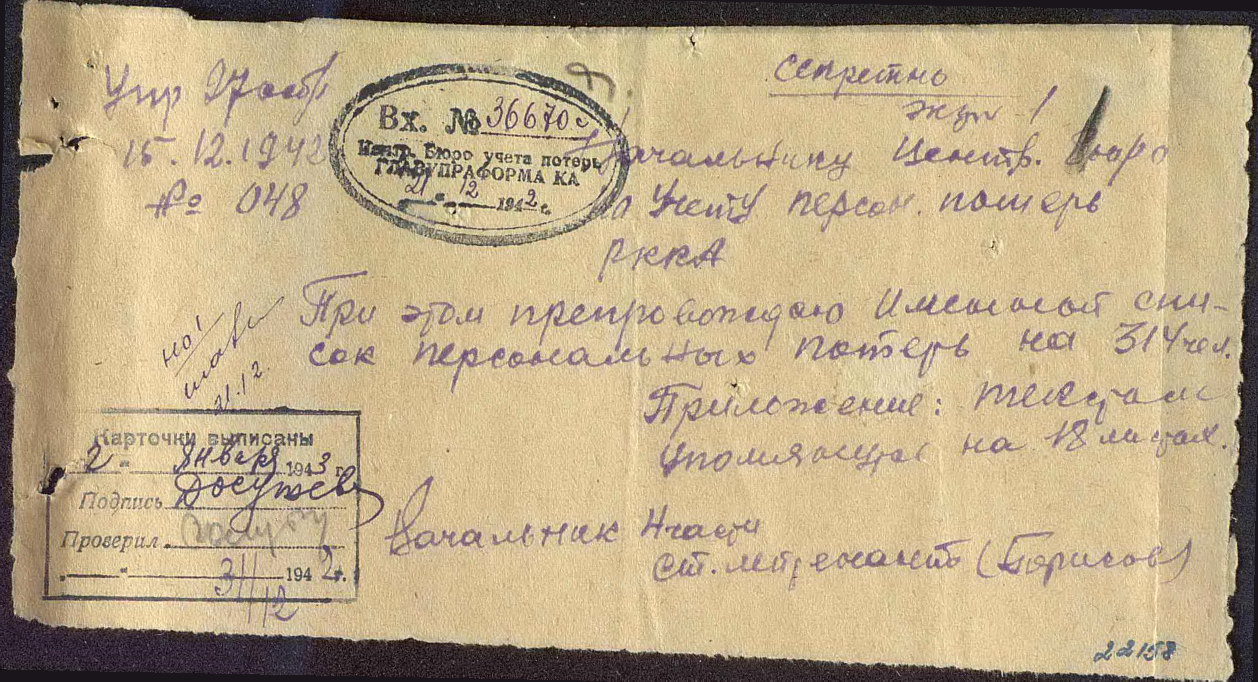 Секретно
экз. 1
Упр 27
15.12.1942
№ 048
Вх. № 36670с
Центр. Бюро учета потерь
ГЛАВУПРАФОРМА КА
21 " 12 1942 г.
Начальнику Центр. Бюро
по учету персон. потерь
РККА
При этом препровождаю Именной спи-
сок персональных потерь на 314 чел.
Приложение:
на 18 листах.
21.12.
Карточки выписаны
2 " января 1943 г.
Подпись Досужев
Проверил
31/12 1942 г.
Начальник 4 части
ст. лейтенант (Борисов)
22158